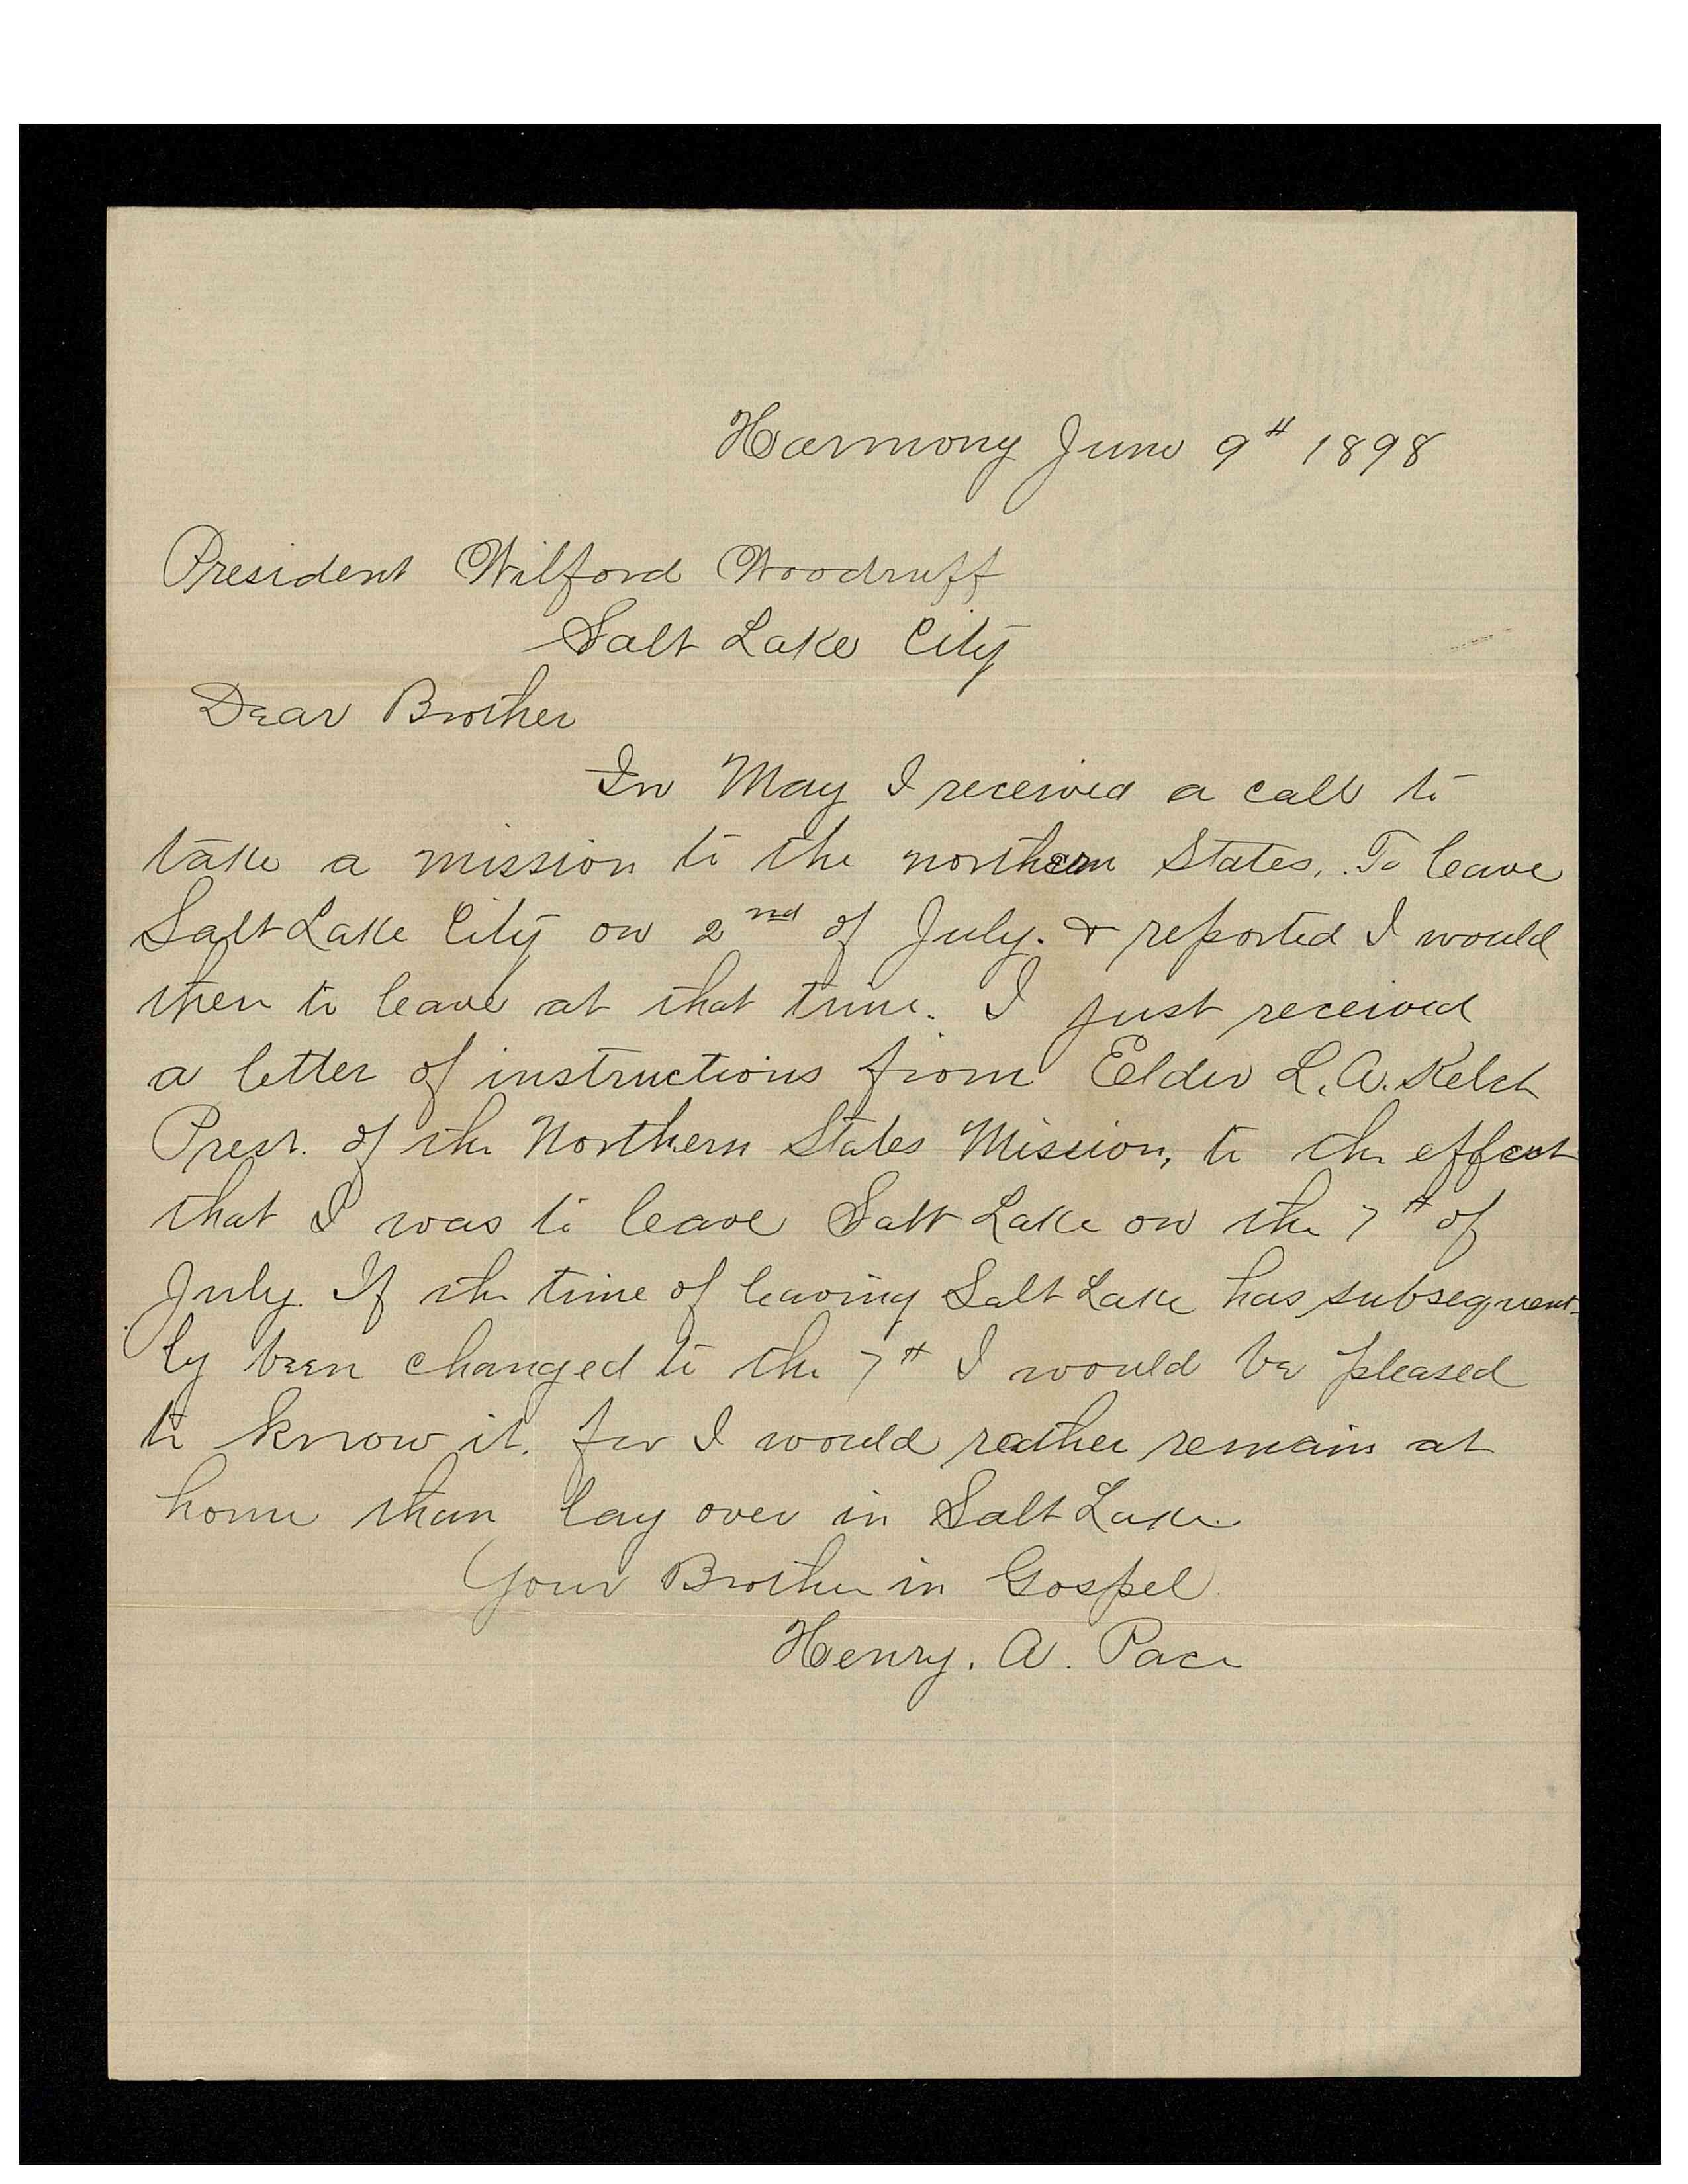 Harmony June 9th 1898
President Wilford Woodruff
Salt Lake City
Dear Brother
In May I received a call to
take a mission to the northern States, To leave
Salt Lake City on 2nd of July. & reported I would
then to leave at that time. I just received
a letter of instructions from Elder L. A. Kelch
Prest. of the Northern States Mission, to the effect
that I was to leave Salt Lake on the 7th of
July. If the time of leaving Salt Lake has subsequent-
ly been changed to the 7th I would be pleased
to know it. for I would reather remain at
home than lay over in Salt Lake.
Your Brother in Gospel.
Henry. A. Pace